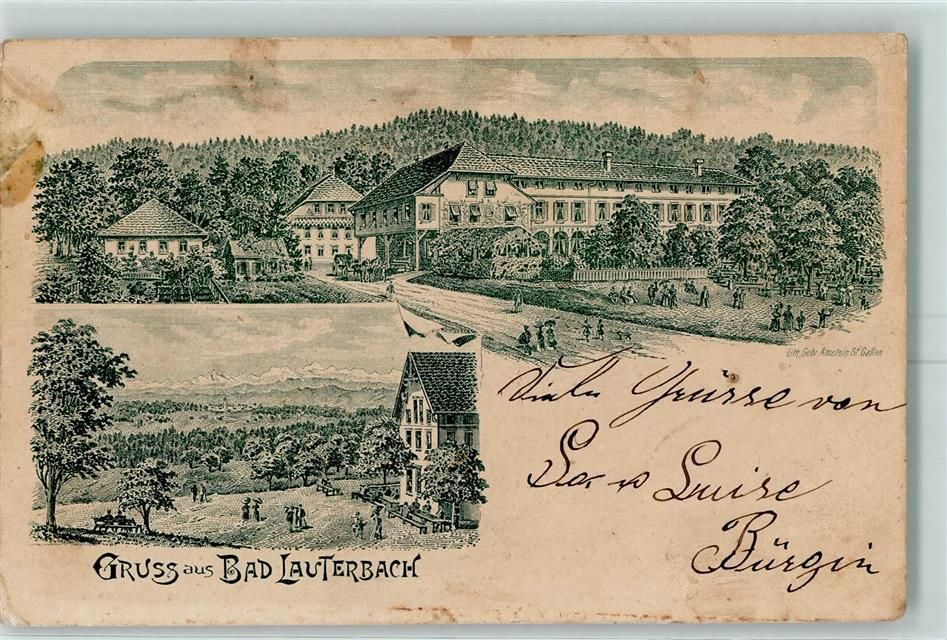 Lith. Gebr. Amstein St. Gallen
Viele Grüsse von
Luise
Bürgin
GRUSS aus BAD LAUTERBACH